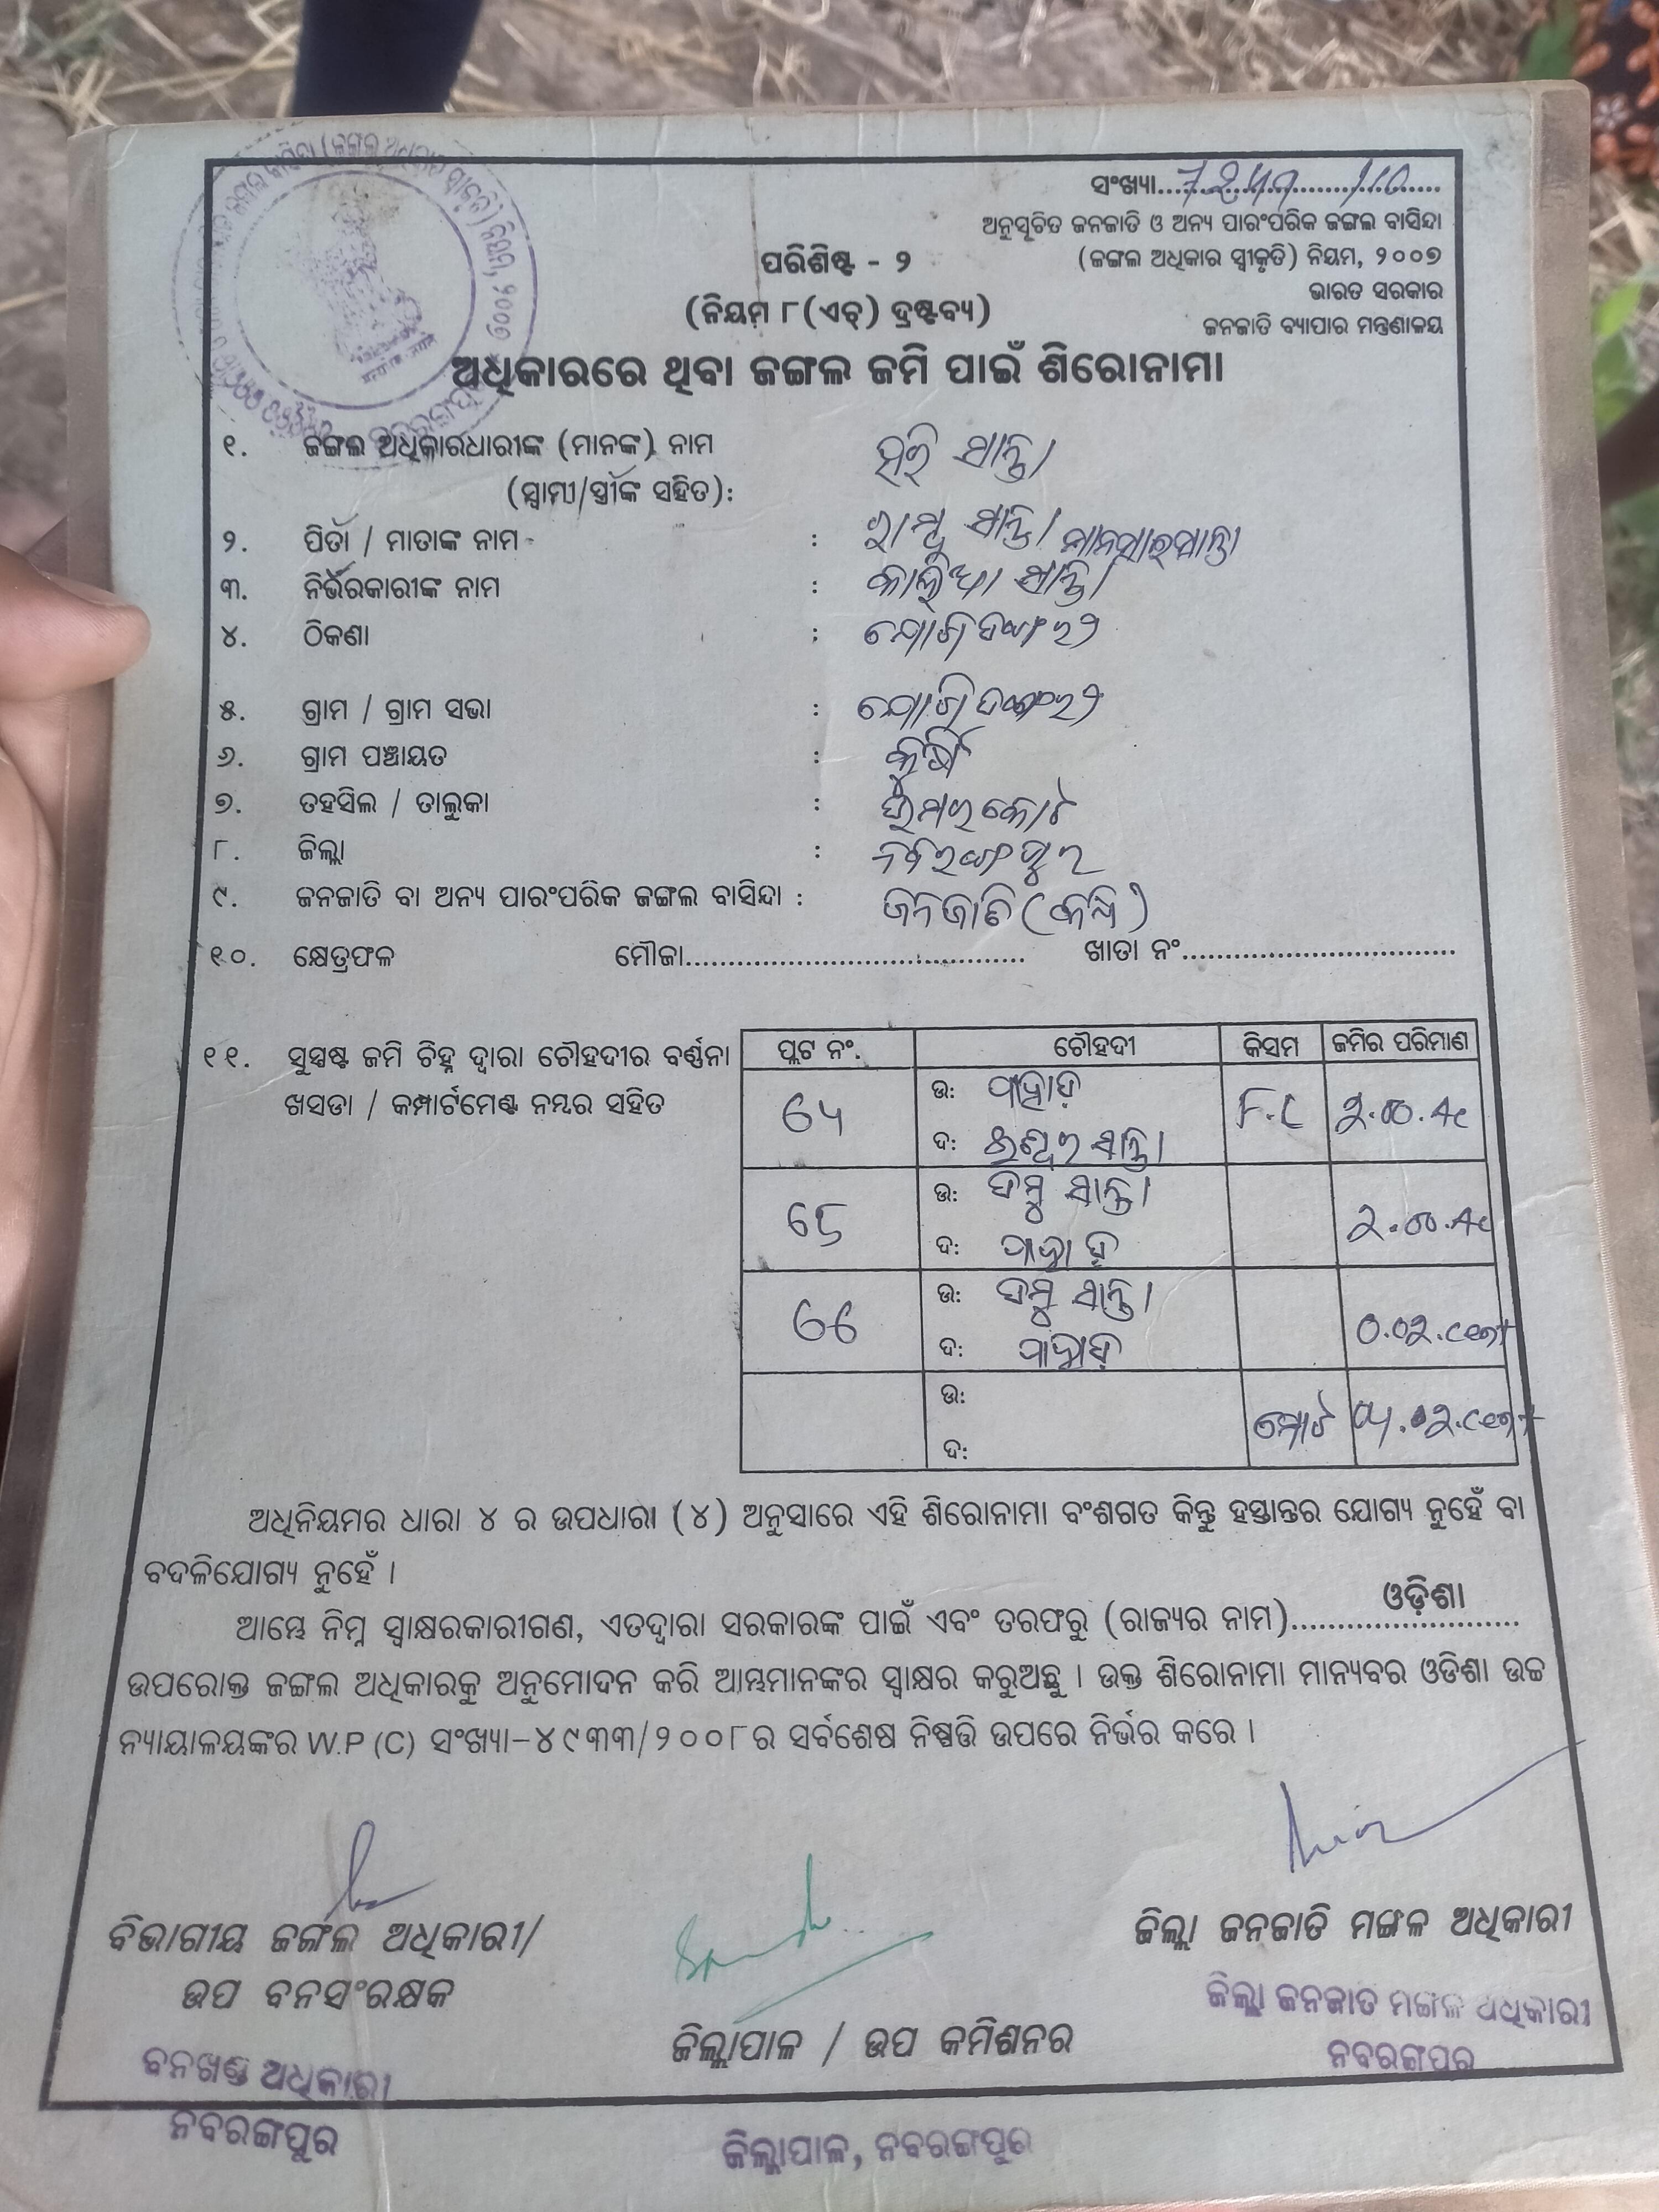 ସଂଖ୍ୟା
ଅନୁସୂଚିତ ଜନଜାତି ଓ ଅନ୍ୟ ପାରଂପରିକ ଜଙ୍ଗଲ ବାସିନ୍ଦା
(ଜଙ୍ଗଲ ଅଧିକାର ସ୍ୱୀକୃତି) ନିୟମ, ୨୦୦୭
ଭାରତ ସରକାର
ଜନଜାତି ବ୍ୟାପାର ମନ୍ତ୍ରଣାଳୟ
ପରିଶିଷ୍ଟ - ୨
(ନିୟମ ୮(ଏଚ୍) ଦ୍ରଷ୍ଟବ୍ୟ)
ଅଧିକାରରେ ଥିବା ଜଙ୍ଗଲ ଜମି ପାଇଁ ଶିରୋନାମା
୧. ଜଙ୍ଗଲ ଅଧିକାରଧାରୀଙ୍କ (ମାନଙ୍କ) ନାମ ହରି ସାନ୍ତା
(ସ୍ୱାମୀ/ସ୍ତ୍ରୀଙ୍କ ସହିତ):
୨. ପିତା / ମାତାଙ୍କ ନାମ : ସାନ୍ତା
୩. ନିର୍ଭରକାରୀଙ୍କ ନାମ : ସାନ୍ତା
୪. ଠିକଣା :
୫. ଗ୍ରାମ / ଗ୍ରାମ ସଭା :
୬. ଗ୍ରାମ ପଞ୍ଚାୟତ :
୭. ତହସିଲ / ତାଲୁକା : ଉମରକୋଟ
୮. ଜିଲ୍ଲା : ନବରଙ୍ଗପୁର
୯. ଜନଜାତି ବା ଅନ୍ୟ ପାରଂପରିକ ଜଙ୍ଗଲ ବାସିନ୍ଦା : ଜନଜାତି
୧୦. କ୍ଷେତ୍ରଫଳ ମୌଜା ଖାତା ନଂ
୧୧. ସୁସ୍ପଷ୍ଟ ଜମି ଚିହ୍ନ ଦ୍ୱାରା ଚୌହଦୀର ବର୍ଣ୍ଣନା
ଖସଡା / କମ୍ପାର୍ଟମେଣ୍ଟ ନମ୍ବର ସହିତ
ପ୍ଲଟ ନଂ. ଚୌହଦୀ କିସମ ଜମିର ପରିମାଣ
ଉ: ପାହାଡ଼
୬୪ F.C ୨.୦୦.Ac
ଦ: ସାନ୍ତା
ଉ: ସାନ୍ତା
୬୫ ୨.୦୦.Ac
ଦ: ପାହାଡ଼
ଉ: ସାନ୍ତା
୬୬ ୦.୦୨.cent
ଦ: ପାହାଡ଼
ଉ:
ମୋଟ ୪.୦୨.cent
ଦ:
ଅଧିନିୟମର ଧାରା ୪ ର ଉପଧାରା (୪) ଅନୁସାରେ ଏହି ଶିରୋନାମା ବଂଶଗତ କିନ୍ତୁ ହସ୍ତାନ୍ତର ଯୋଗ୍ୟ ନୁହେଁ ବା
ବଦଳିଯୋଗ୍ୟ ନୁହେଁ ।
ଆମ୍ଭେ ନିମ୍ନ ସ୍ୱାକ୍ଷରକାରୀଗଣ, ଏତଦ୍ୱାରା ସରକାରଙ୍କ ପାଇଁ ଏବଂ ତରଫରୁ (ରାଜ୍ୟର ନାମ) ଓଡ଼ିଶା
ଉପରୋକ୍ତ ଜଙ୍ଗଲ ଅଧିକାରକୁ ଅନୁମୋଦନ କରି ଆମ୍ଭମାନଙ୍କର ସ୍ୱାକ୍ଷର କରୁଅଛୁ । ଉକ୍ତ ଶିରୋନାମା ମାନ୍ୟବର ଓଡିଶା ଉଚ୍ଚ
ନ୍ୟାୟାଳୟଙ୍କର W.P (C) ସଂଖ୍ୟା-୪୯୩୩/୨୦୦୮ର ସର୍ବଶେଷ ନିଷ୍ପତ୍ତି ଉପରେ ନିର୍ଭର କରେ ।
ବିଭାଗୀୟ ଜଙ୍ଗଲ ଅଧିକାରୀ/
ଉପ ବନସଂରକ୍ଷକ
ବନଖଣ୍ଡ ଅଧିକାରୀ
ନବରଙ୍ଗପୁର
ଜିଲ୍ଲାପାଳ / ଉପ କମିଶନର
ଜିଲ୍ଲାପାଳ, ନବରଙ୍ଗପୁର
ଜିଲ୍ଲା ଜନଜାତି ମଙ୍ଗଳ ଅଧିକାରୀ
ଜିଲ୍ଲା ଜନଜାତି ମଙ୍ଗଳ ଅଧିକାରୀ
ନବରଙ୍ଗପୁର